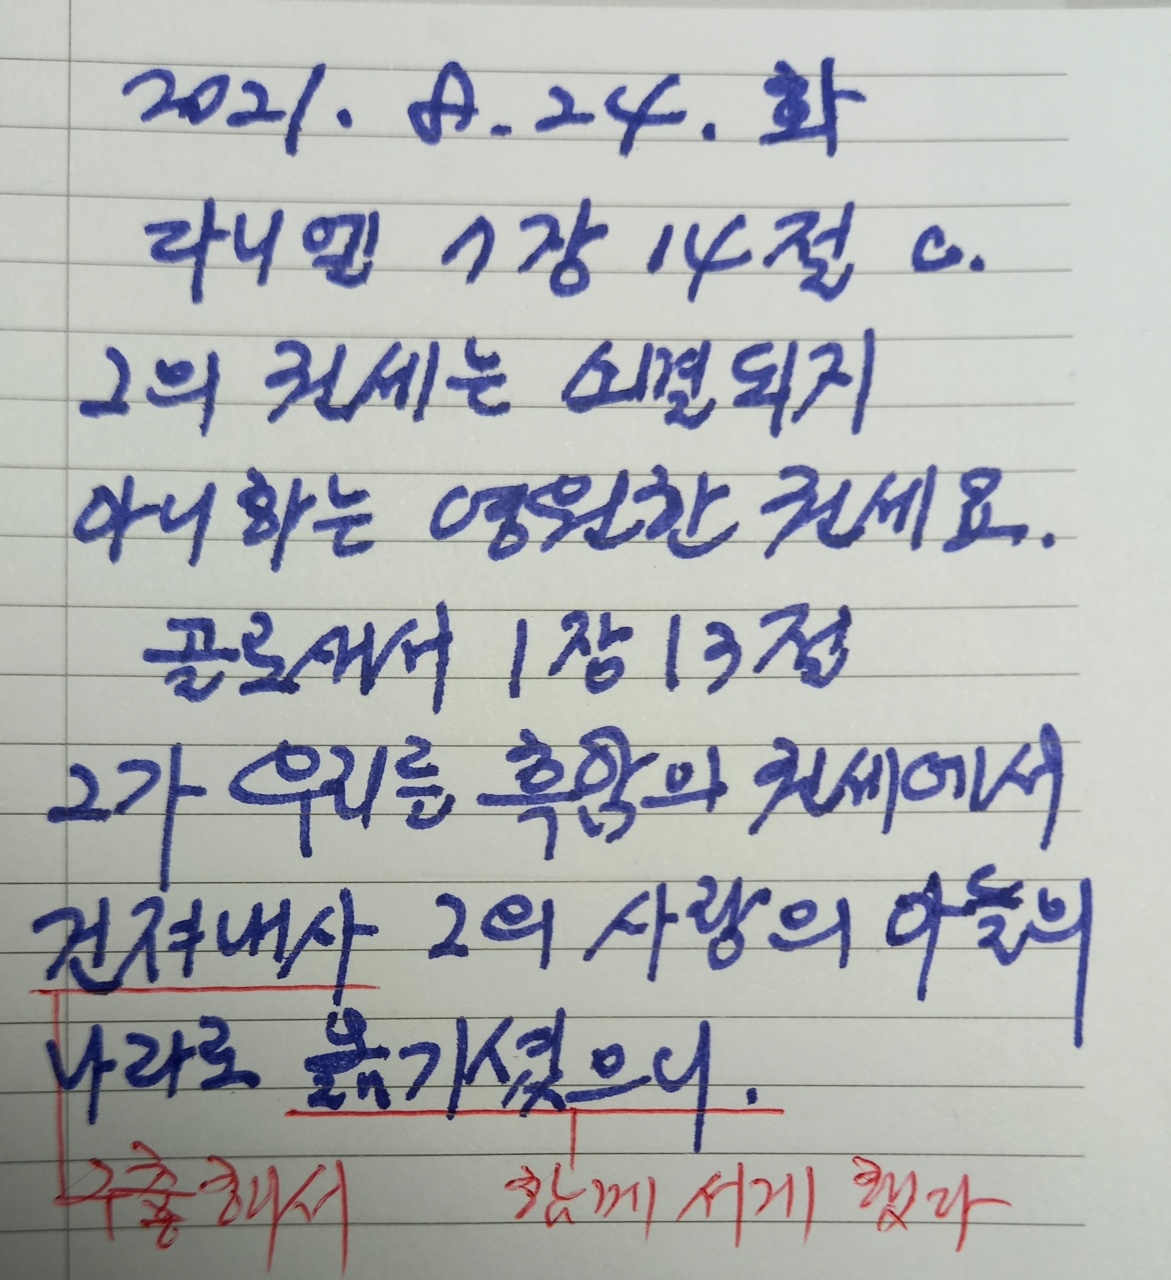 2021. 8. 24. 화
다니엘 7장 14절 c.
그의 권세는 소멸되지
아니하는 영원한 권세요.
골로새서 1장 13절
그가 우리를 흑암의 권세에서
건져내사 그의 사랑의 아들의
나라로 옮기셨으니.
구출해서 함께 서게 했다